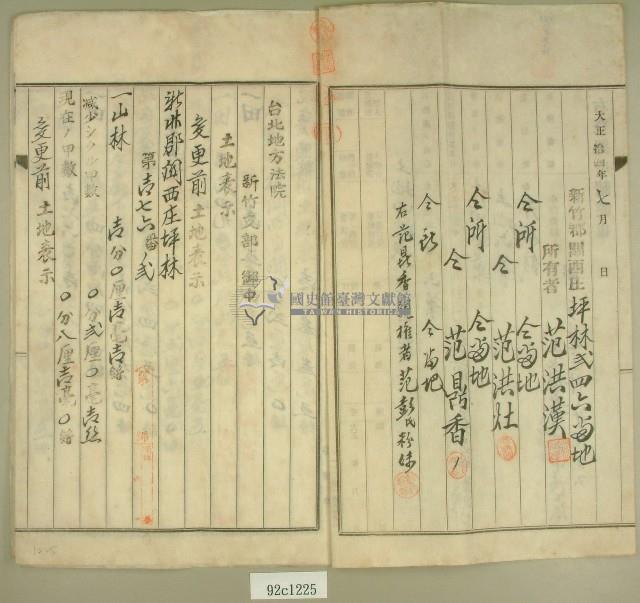 大正拾四年七月 日
新竹郡關西庄坪林弍四六番地
所有者 范洪漢
仝所 仝番地
仝 范洪灶
仝所 仝番地
仝 范昂香
仝所 仝番地
右范昂香親權者范彭氏粉妹
台北地方法院
新竹支部 御中
土地表示
変更前 土地表示
新竹郡關西庄坪林
第吉七六番ノ弍
一山林 吉分〇厘吉毫吉絲
減少シタル甲數 〇分弍厘〇毫吉絲
現在ノ甲數 〇分八厘吉毫〇絲
変更前 土地表示
國史館臺灣文獻館
TAIWAN HISTORICA
92c1225